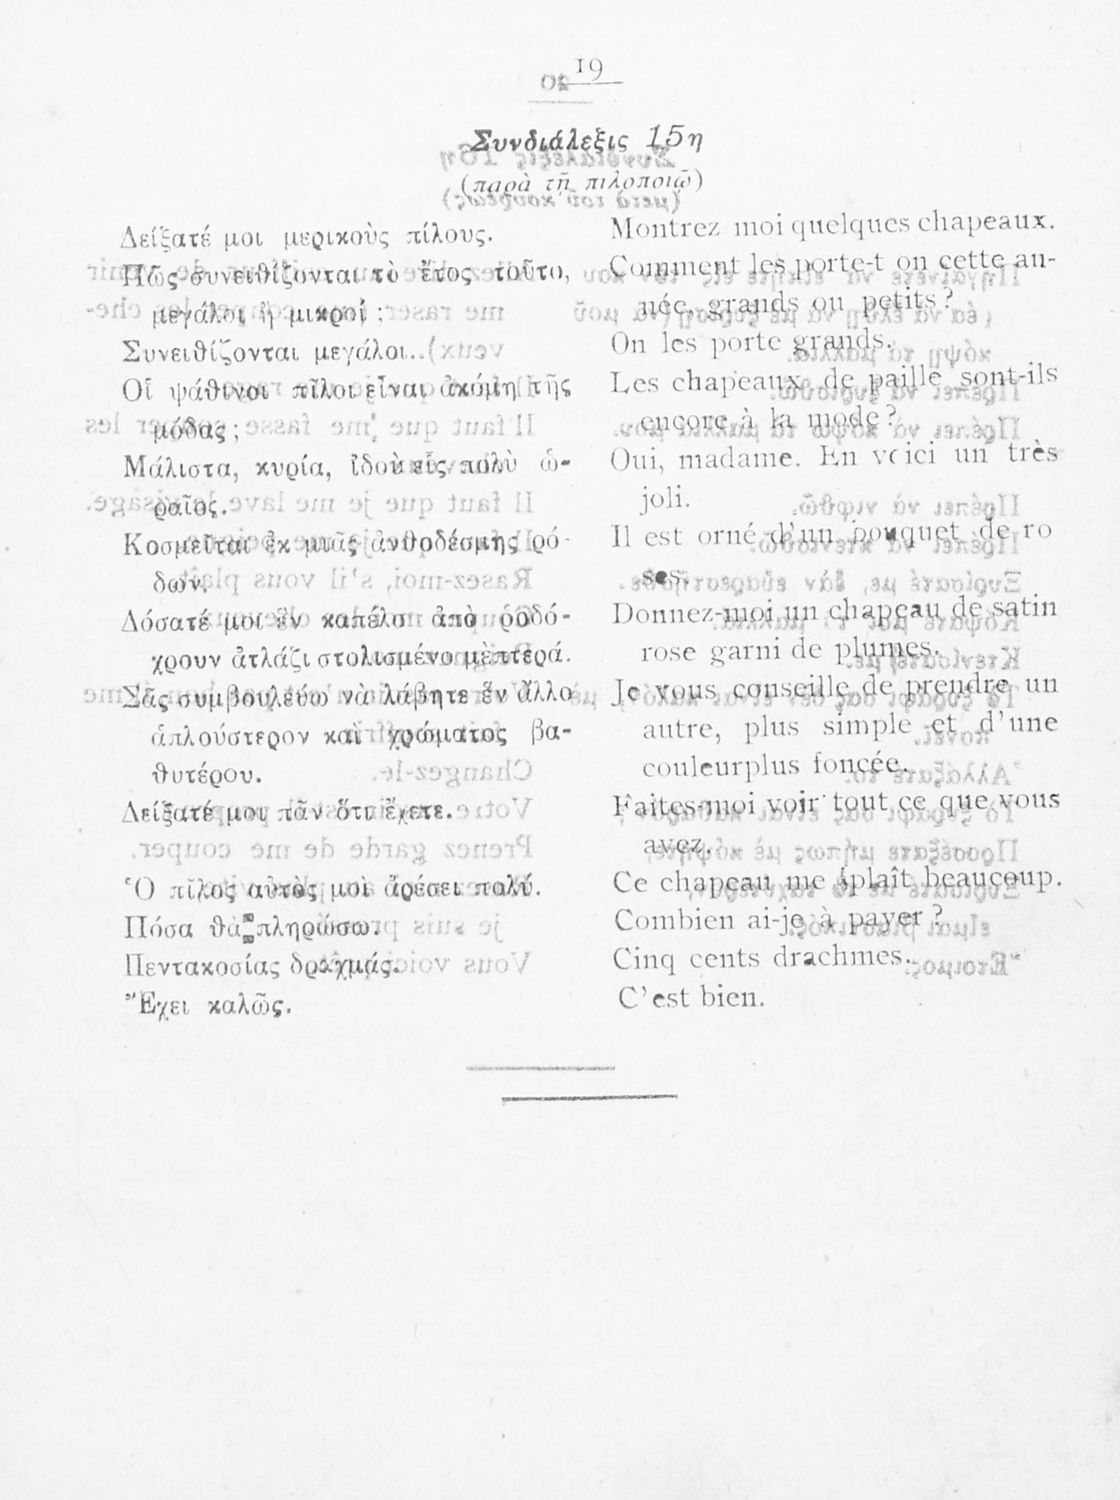 19
Συνδιάλεξις 15η
(παρὰ τῇ πιλοποιῷ)
Δείξατέ μοι μερικοὺς πίλους.
Πῶς συνειθίζονται τὸ ἔτος τοῦτο,
μεγάλοι ἢ μικροί ;
Συνειθίζονται μεγάλοι..
Οἱ ψάθινοι πῖλοι εἶναι ἀκόμη τῆς
μόδας ;
Μάλιστα, κυρία, ἰδοὺ εἷς πολὺ ὡ-
ραῖος.
Κοσμεῖται ἐκ μιᾶς ἀνθοδέσμης ῥό-
δων.
Δόσατέ μοι ἓν καπέλο ἀπὸ ῥοδό-
χρουν ἀτλάζι στολισμένο μὲ πτερά.
Σᾶς συμβουλεύω νὰ λάβητε ἓν ἄλλο
ἁπλούστερον καὶ χρώματος βα-
θυτέρου.
Δείξατέ μοι πᾶν ὅτι ἔχετε.
Ὁ πῖλος αὐτὸς μοὶ ἀρέσει πολύ.
Πόσα θὰ πληρώσω.
Πεντακοσίας δραχμάς.
Ἔχει καλῶς.
Montrez moi quelques chapeaux.
Comment les porte-t on cette an-
née, grands ou petits ?
On les porte grands.
Les chapeaux de paille sont-ils
encore à la mode ?
Oui, madame. En voici un très
joli.
Il est orné d'un bouquet de ro
ses.
Donnez-moi un chapeau de satin
rose garni de plumes.
Je vous conseille de prendre un
autre, plus simple et d'une
couleurplus foncée.
Faites-moi voir tout ce que vous
avez.
Ce chapeau me plaît beaucoup.
Combien ai-je à payer ?
Cinq cents drachmes.
C'est bien.